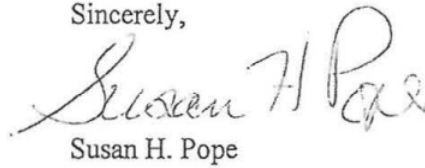 Sincerely,
Susan H Pope
Susan H. Pope